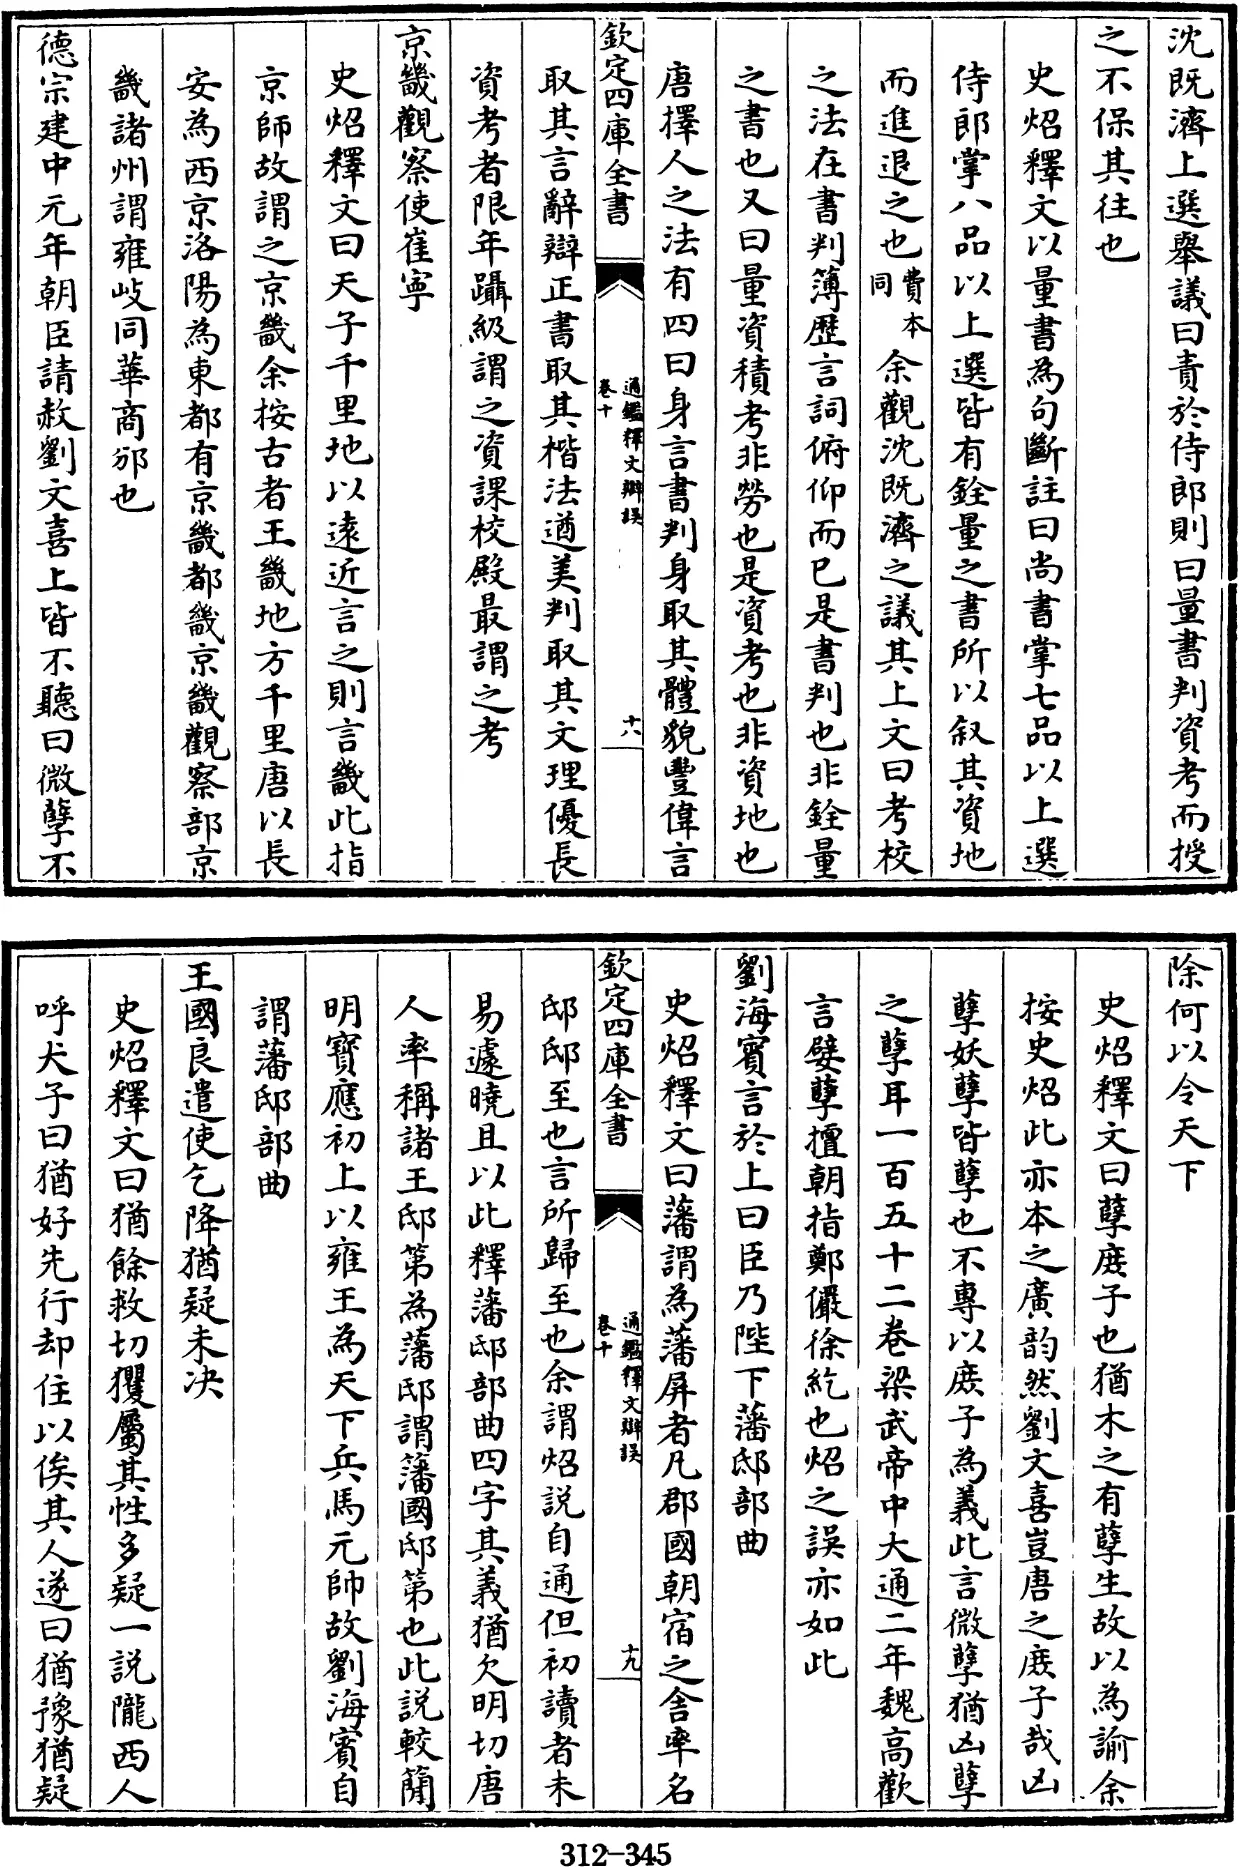 沈既濟上選舉議曰責於侍郎則曰量書判資考而授
之不保其往也
史炤釋文以量書為句斷註曰尚書掌七品以上選
侍郎掌八品以上選皆有銓量之書所以叙其資地
而進退之也費本同余觀沈既濟之議其上文曰考校
之法在書判簿歷言詞俯仰而已是書判也非銓量
之書也又曰量資積考非勞也是資考也非資地也
唐擇人之法有四曰身言書判身取其體貌豐偉言
欽定四庫全書
通鑑釋文辯誤
卷十
十八
取其言辭辯正書取其楷法遒美判取其文理優長
資考者限年躡級謂之資課校殿最謂之考
京畿觀察使崔寧
史炤釋文曰天子千里地以遠近言之則言畿此指
京師故謂之京畿余按古者王畿地方千里唐以長
安為西京洛陽為東都有京畿都畿京畿觀察部京
畿諸州謂雍岐同華商邠也
德宗建中元年朝臣請赦劉文喜上皆不聽曰微孽不
除何以令天下
史炤釋文曰孽庻子也猶木之有孽生故以為諭余
按史炤此亦本之廣韵然劉文喜豈唐之庻子哉凶
孽妖孽皆孽也不專以庻子為義此言微孽猶凶孽
之孽耳一百五十二卷梁武帝中大通二年魏高歡
言嬖孽擅朝指鄭儼徐紇也炤之誤亦如此
劉海賓言於上曰臣乃陛下藩邸部曲
史炤釋文曰藩謂為藩屏者凡郡國朝宿之舍率名
欽定四庫全書
通鑑釋文辯誤
卷十
十九
邸邸至也言所歸至也余謂炤說自通但初讀者未
易遽曉且以此釋藩邸部曲四字其義猶欠明切唐
人率稱諸王邸第為藩邸謂藩國邸第也此説較簡
明寳應初上以雍王為天下兵馬元帥故劉海賓自
謂藩邸部曲
王國良遣使乞降猶疑未决
史炤釋文曰猶餘救切玃屬其性多疑一説隴西人
呼犬子曰猶好先行却住以俟其人遂曰猶豫猶疑
312-345